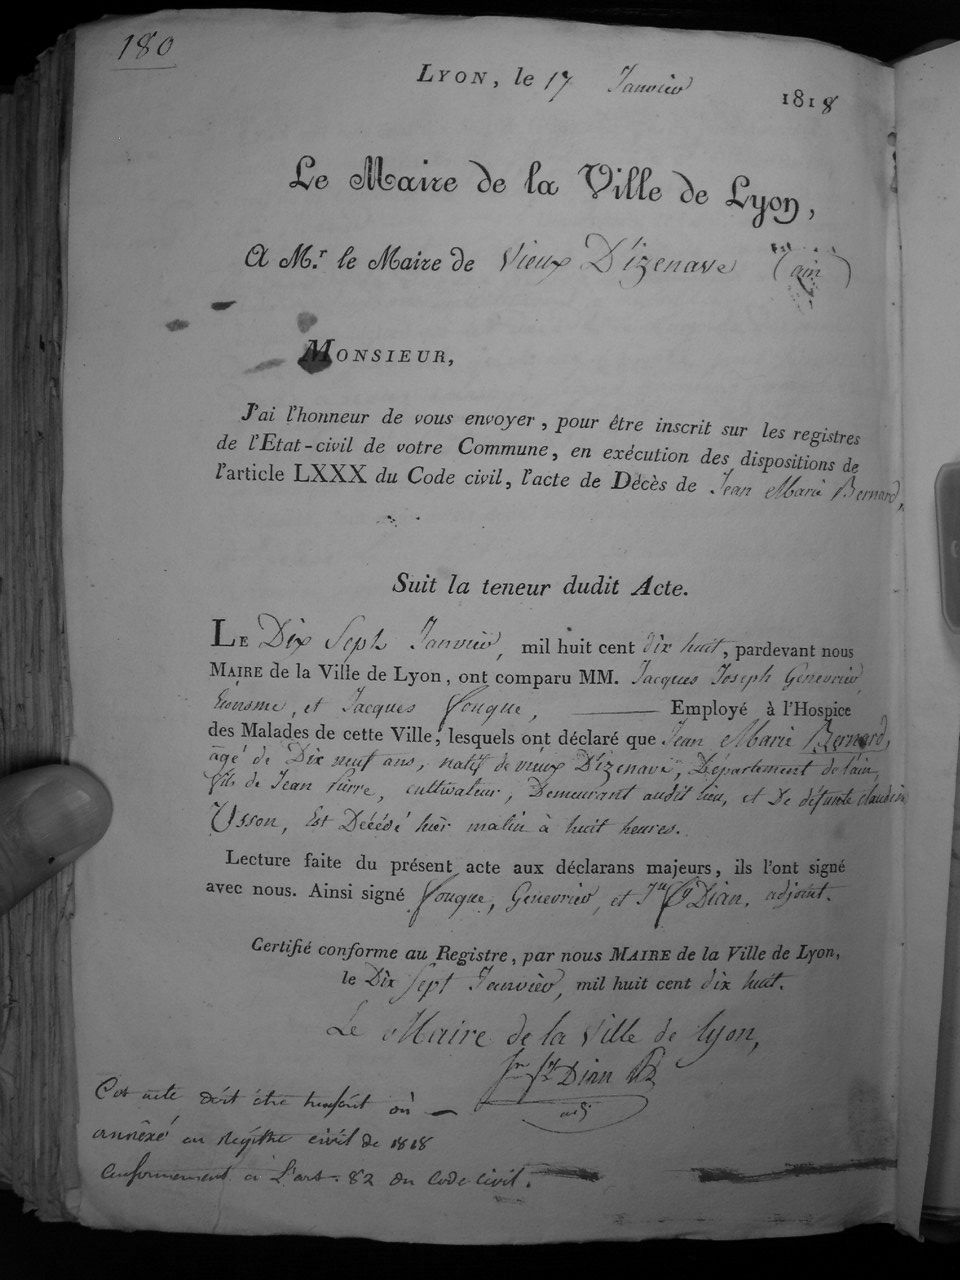 180
LYON, le 17 Janvier
1818
Le Maire de la Ville de Lyon,
A M.r le Maire de Vieux D'izenave (ain)
MONSIEUR,
J'ai l'honneur de vous envoyer, pour être inscrit sur les registres
de l'Etat-civil de votre Commune, en exécution des dispositions de
l'article LXXX du Code civil, l'acte de Décès de Jean Marie Bernard,
Suit la teneur dudit Acte.
LE Dix Sept Janvier, mil huit cent dix huit, pardevant nous
MAIRE de la Ville de Lyon, ont comparu MM. Jacques Joseph Genevrier
Econome, et Jacques Fouque, Employé à l'Hospice
des Malades de cette Ville, lesquels ont déclaré que Jean Marie Bernard,
âgé de Dix neuf ans, natif de vieux D'izenave, Département de l'ain,
fils de Jean Pierre, cultivateur, Demeurant audit lieu, et De défunte claudine
Usson, Est Décédé hier matin à huit heures.
Lecture faite du présent acte aux déclarans majeurs, ils l'ont signé
avec nous. Ainsi signé Fouque, Genevrier, et Dian, adjoint.
Certifié conforme au Registre, par nous MAIRE de la Ville de Lyon,
le Dix Sept Janvier, mil huit cent dix huit.
Le Maire de la Ville de Lyon,
Dian
adj
Cet acte doit être ou
annéxé au Régistre civil de 1818
Conformement à l'art. 82 du Code civil.